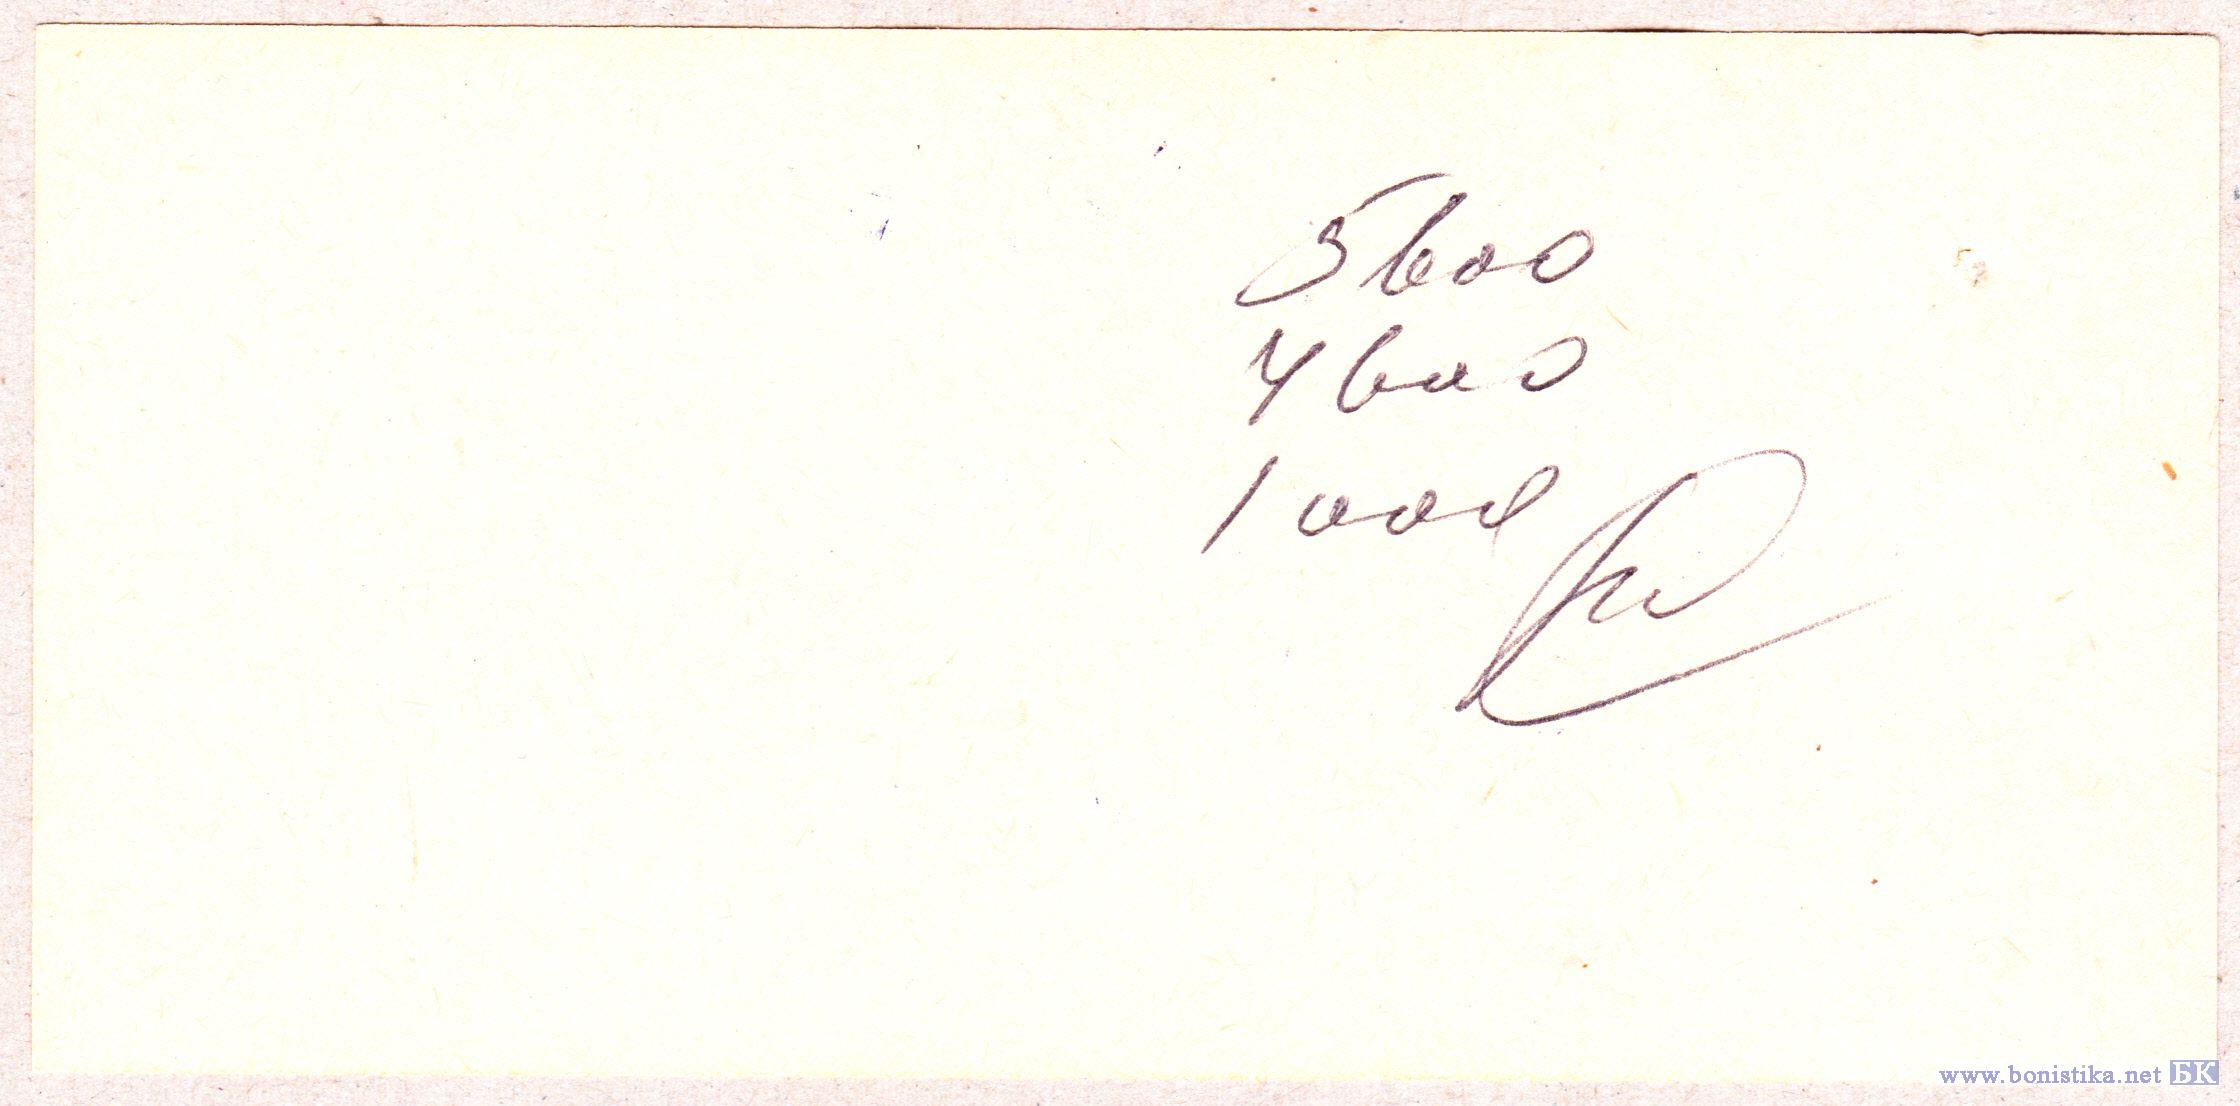 5600
4600
1000
www.bonistika.net БК